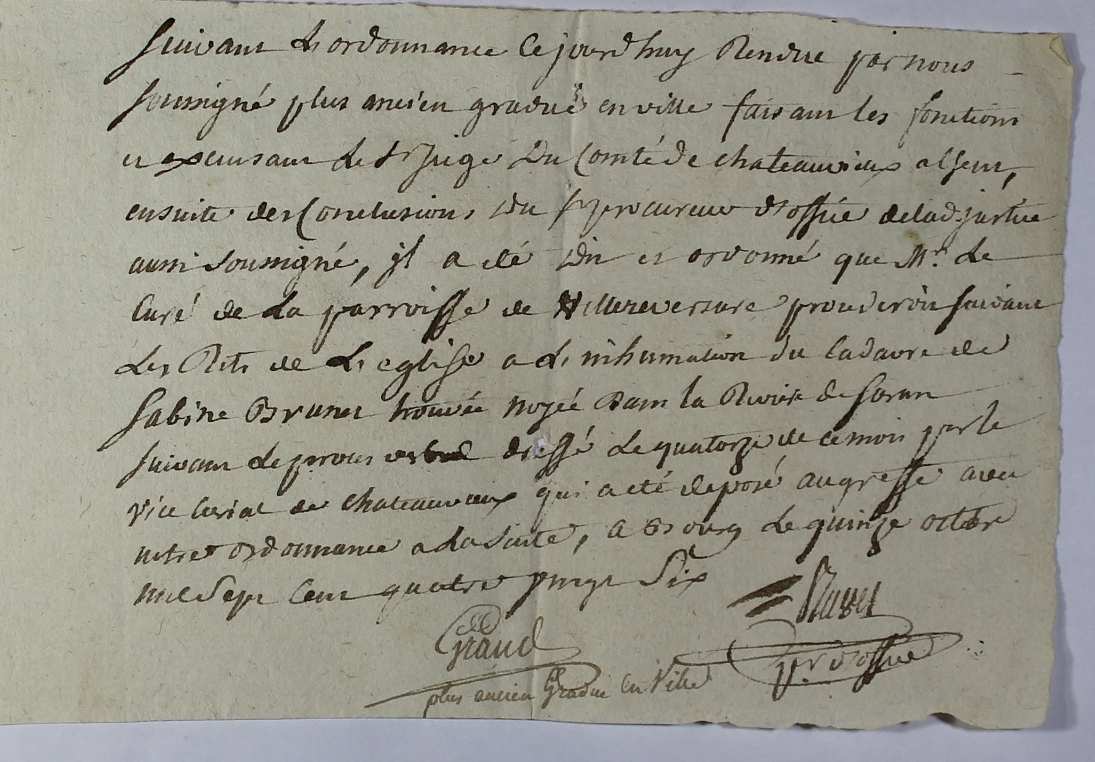 suivant L'ordonnance Cejourdhuy Rendue par nous
soussigné plus ancien gradué en ville faisant les fonctions
et exercisant de Sr Juge Du Comté de chateauvieux absent,
ensuite des Conclusions du Sr procureur d'office deladt justice
aussi soussigné, jl a eté dit et ordonné que Mr. Le
Curé de La parroisse de Villereversure procedera suivant
Les Rits de L'eglise a L'inhumation du Cadavre de
Sabine Brunet trouvée noyée Dans la Riviere de Suran
suivant Le proces verbal dressé Le quatorze de ce mois par le
vice Curial de chateauvieux qui a eté deposé au greffe avec
notre ordonnance a La Suite, a Bourg Le quinze octobre
mil Sept Cent quatre vingt Six
Giraud
plus ancien Gradué en Ville
pr d'office